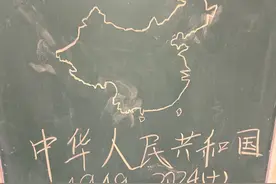 中华人民共和国
1949 2024(十)